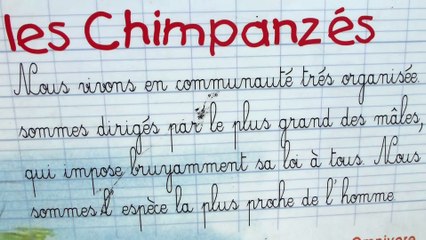 les Chimpanzés
Nous vivons en communauté trés organisée.
sommes dirigés par le plus grand des mâles,
qui impose bruyamment sa loi à tous. Nous
sommes l'espèce la plus proche de l'homme
Omnivore